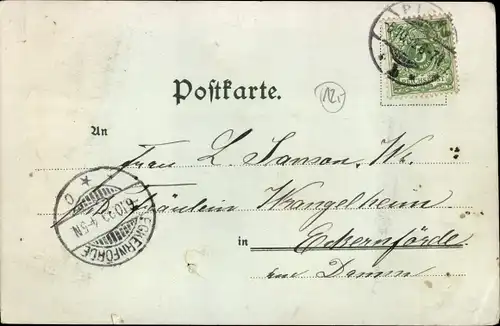 Postkarte.
12.-
An
Frau L. Sanson, Ww.
Fräulein Wrangelheim
in Eckernförde
Damm
ECKERNFÖRDE
6.10.99. 4-5N
* c